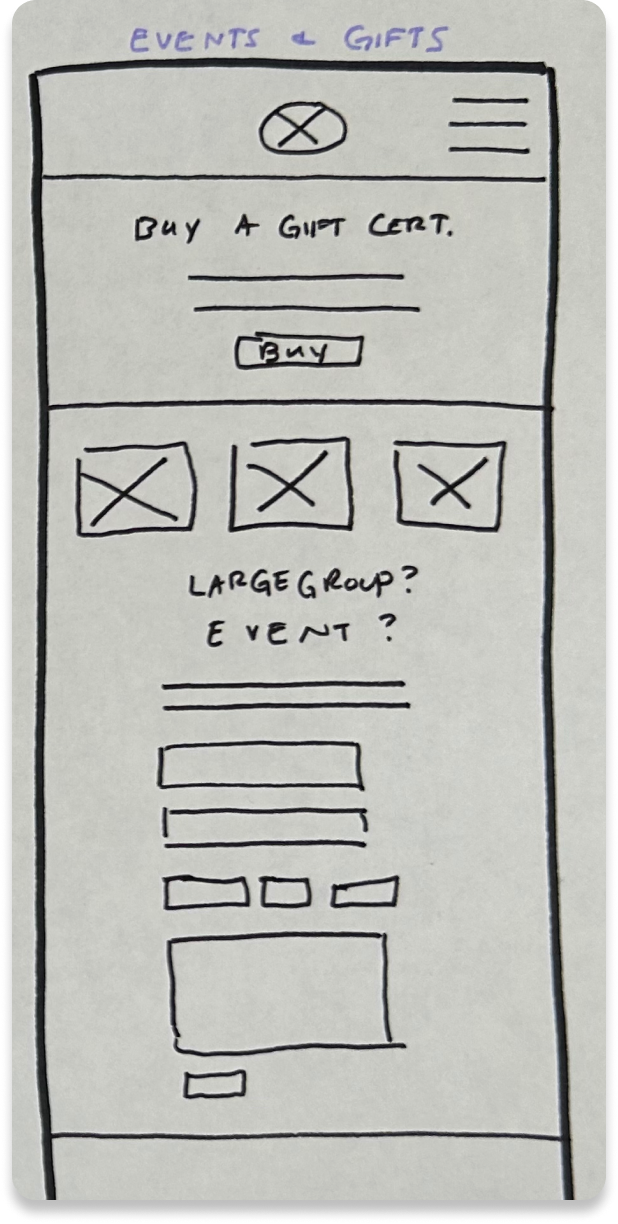 EVENTS & GIFTS
BUY A GIFT CERT.
BUY
LARGE GROUP?
EVENT ?